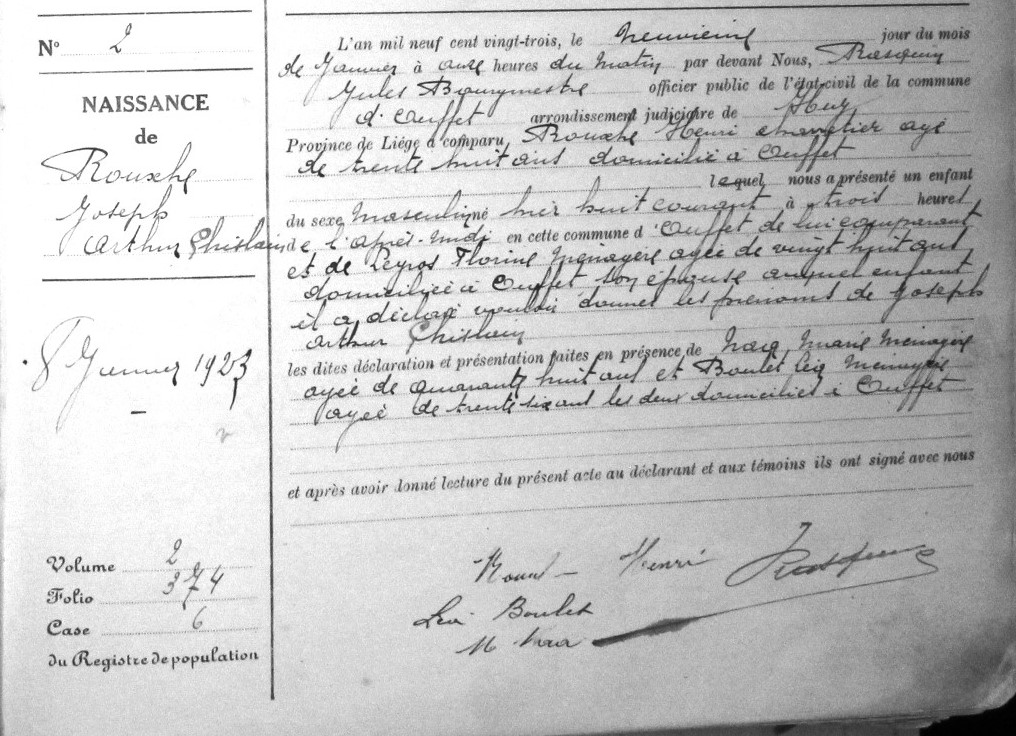 N° 2
NAISSANCE
de
Rouxhe
Joseph
Arthur Ghislain
8 Janvier 1923
Volume 2
Folio 374
Case 6
du Registre de population
L'an mil neuf cent vingt-trois, le neuvième jour du mois
de Janvier à onze heures du matin par devant Nous, Rasquin
Jules Bourgmestre officier public de l'état-civil de la commune
d'Ouffet arrondissement judiciaire de Huy
Province de Liége a comparu Rouxhe Henri agé
de trente huit ans domicilié à Ouffet
lequel nous a présenté un enfant
du sexe Masculin né hier huit courant à trois heures
de l'après-midi en cette commune d'Ouffet de lui comparant
et de Florine Ménagère agée de vingt huit ans
domiciliée à Ouffet son épouse auquel enfant
il a déclaré vouloir donner les prénoms de Joseph
Arthur Ghislain
les dites déclaration et présentation faites en présence de Marie Ménagère
agée de quarante huit ans et Boulet Léa Ménagère
agée de trente six ans les deux domiciliés à Ouffet
et après avoir donné lecture du présent acte au déclarant et aux témoins ils ont signé avec nous
Henri Rasquin
Léa Boulet
M